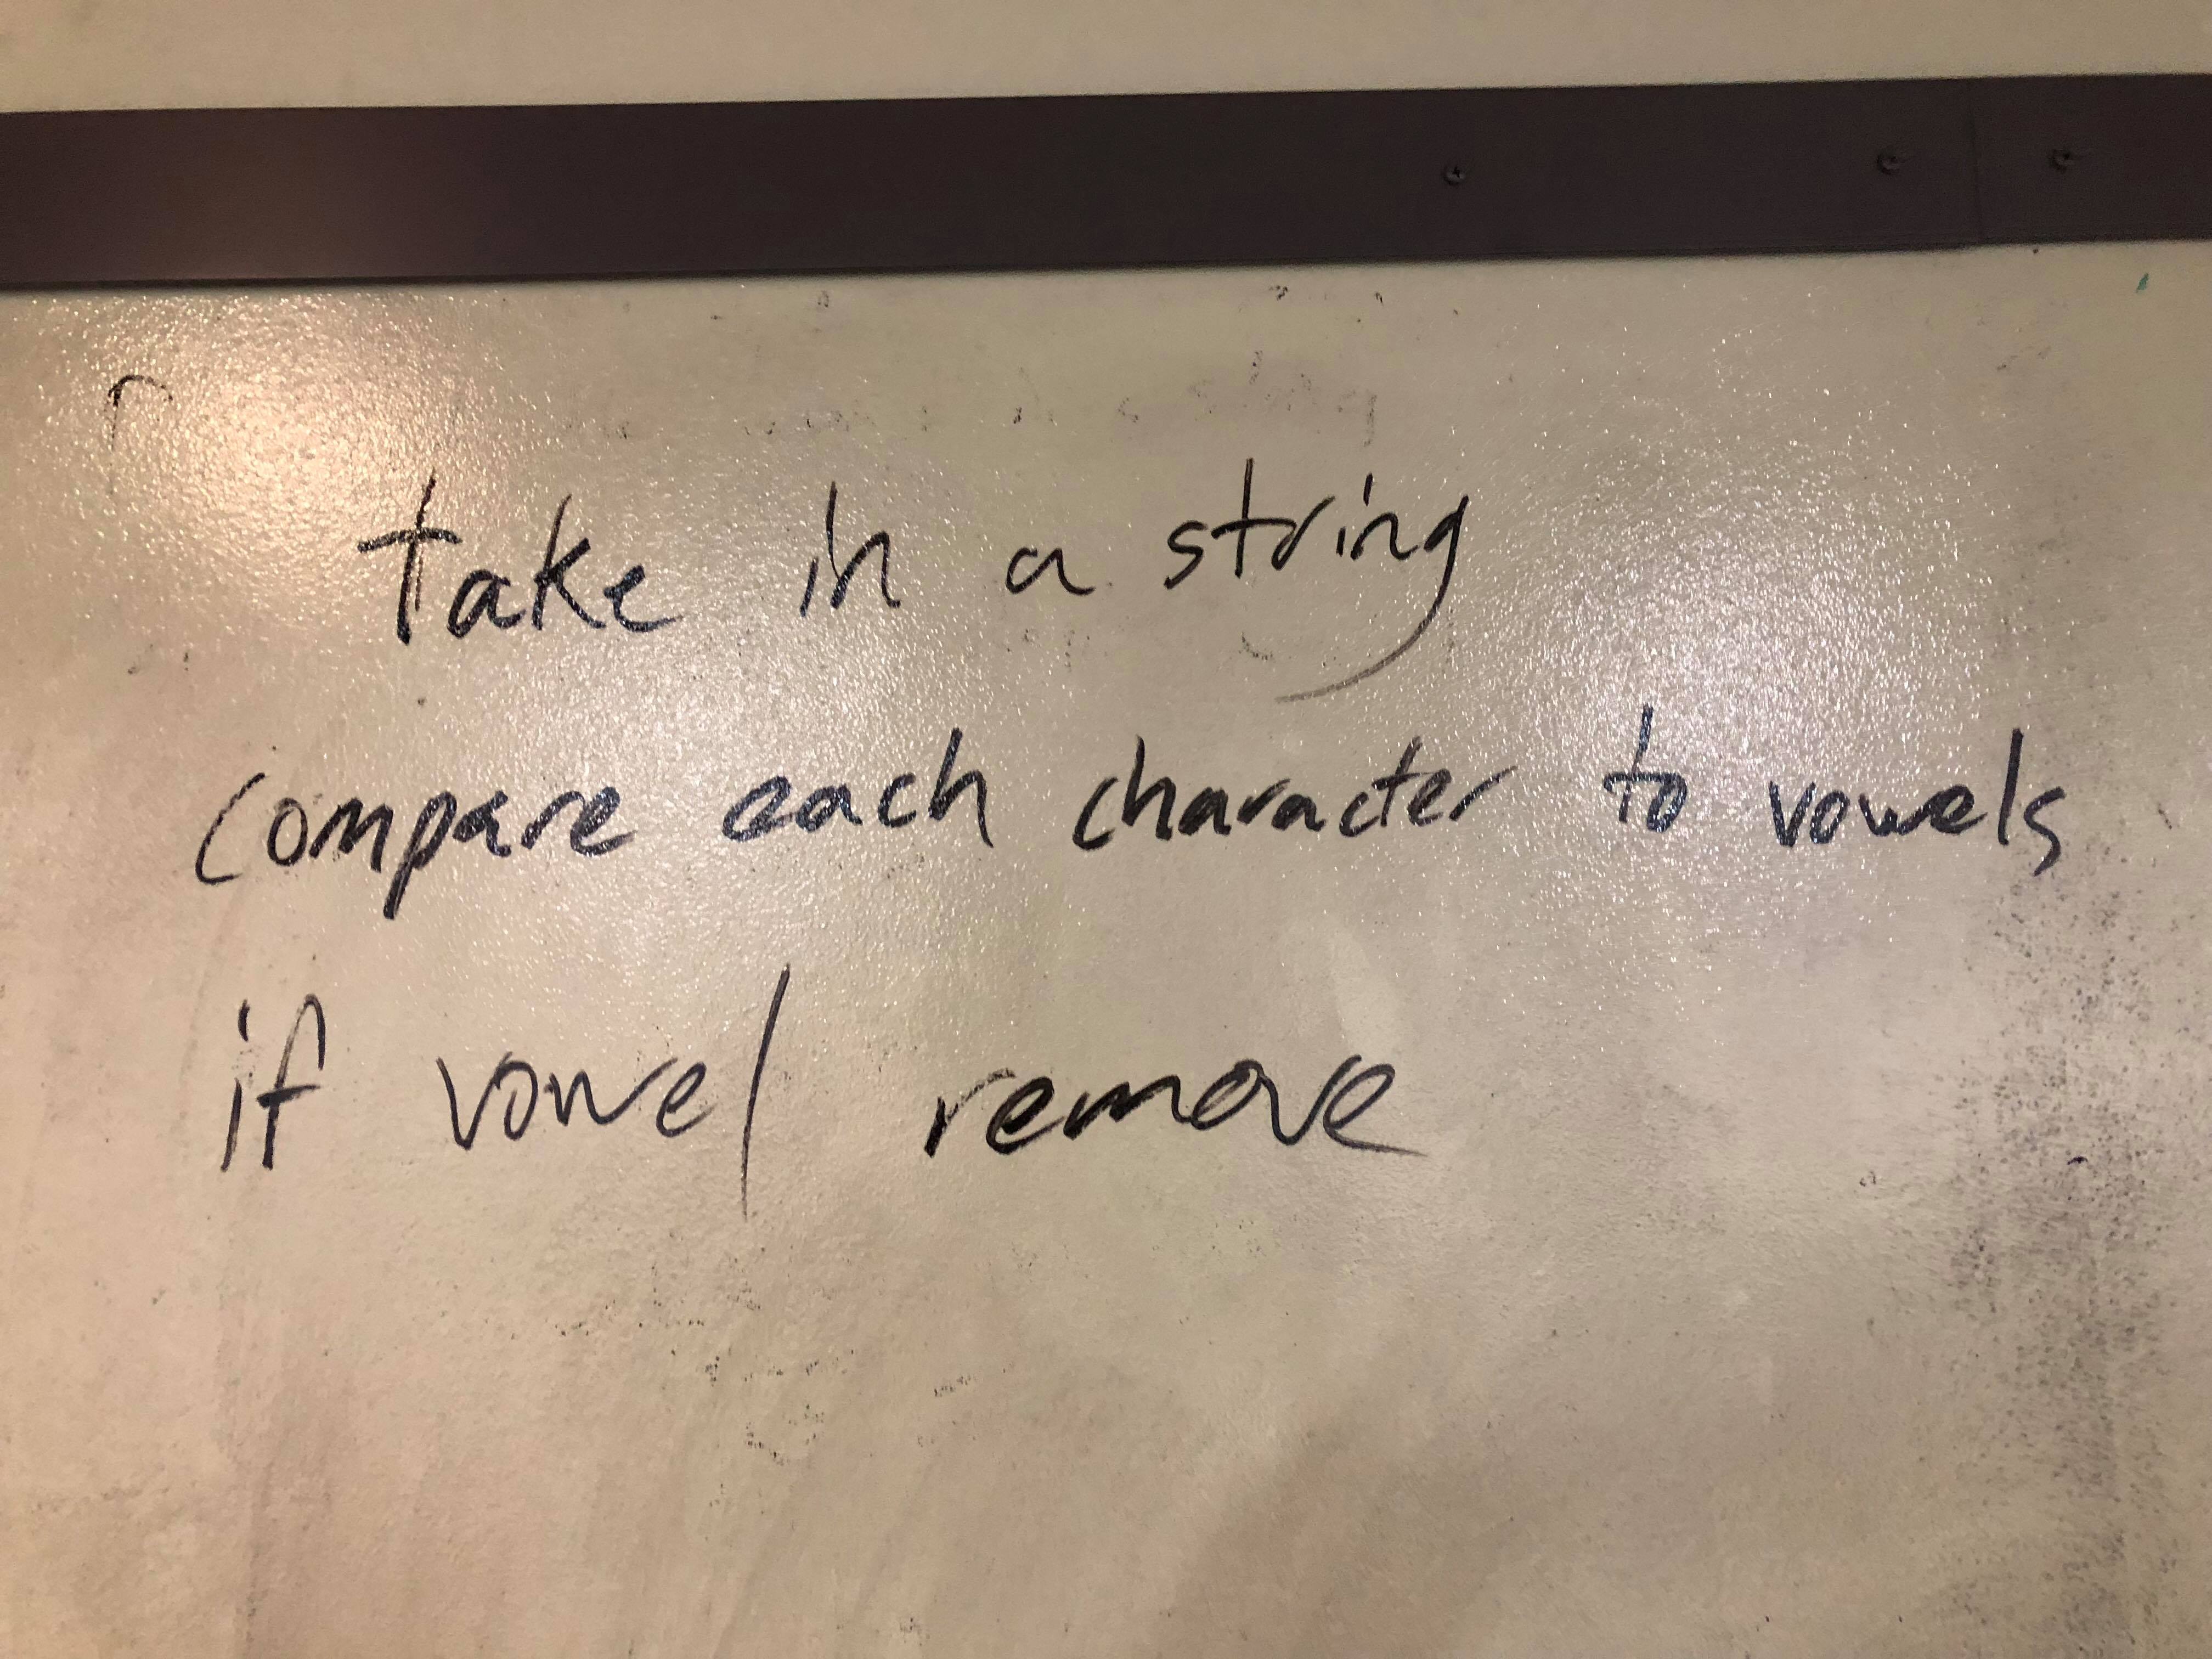 take in a string
compare each character to vowels
if vowel remove